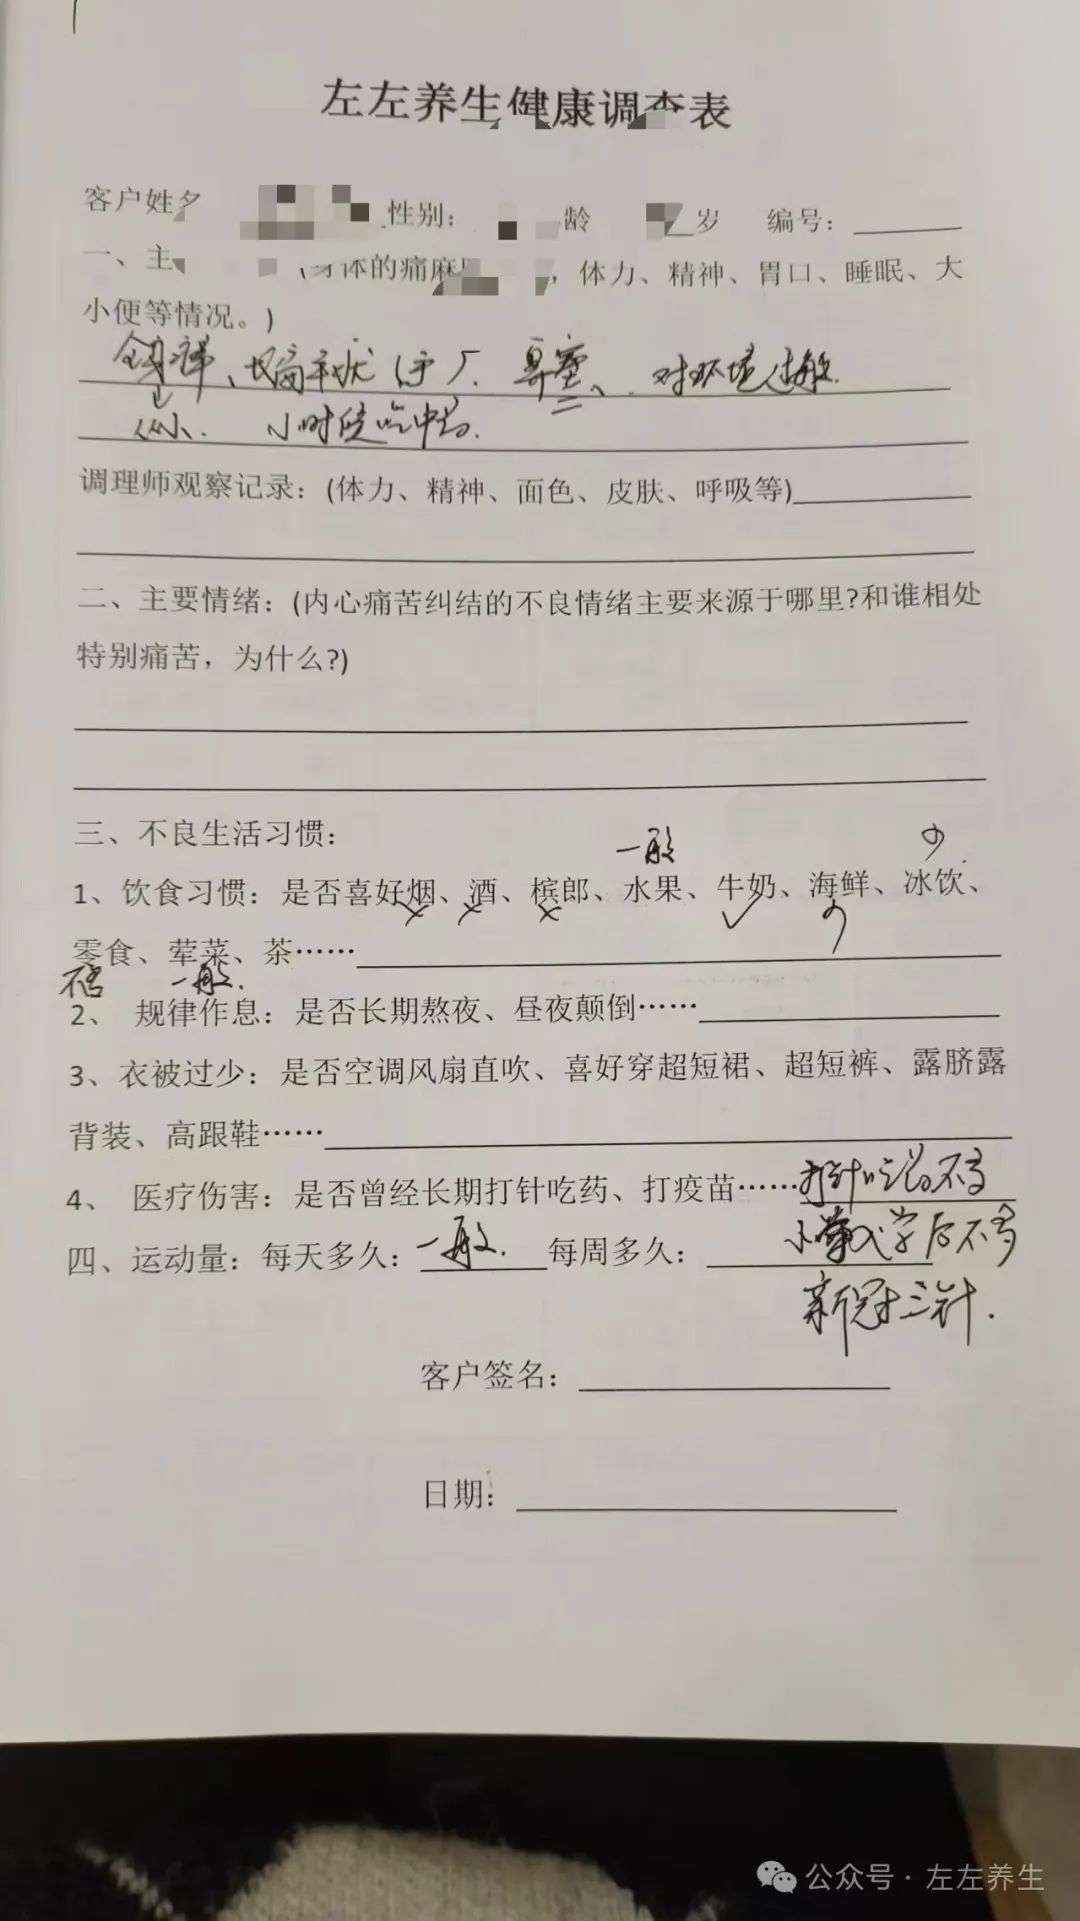 左左养生健康调查表
客户姓名 性别： 龄 岁 编号：
一、主 (身体的痛麻 ，体力、精神、胃口、睡眠、大
小便等情况。)
全身痒、 手 鼻塞、对环境过敏.
从小. 小时候吃中药.
调理师观察记录：(体力、精神、面色、皮肤、呼吸等)
二、主要情绪：(内心痛苦纠结的不良情绪主要来源于哪里?和谁相处
特别痛苦，为什么?)
三、不良生活习惯：
一般 少.
1、饮食习惯：是否喜好烟、酒、槟郎、水果、牛奶、海鲜、冰饮、
× × × ✓ 少
零食、荤菜、茶……
一般.
2、 规律作息：是否长期熬夜、昼夜颠倒……
3、衣被过少：是否空调风扇直吹、喜好穿超短裙、超短裤、露脐露
背装、高跟鞋……
4、 医疗伤害：是否曾经长期打针吃药、打疫苗……打针吃药不多
四、运动量：每天多久：一般. 每周多久： 小学入学后不多
新冠三针.
客户签名：
日期：
公众号·左左养生